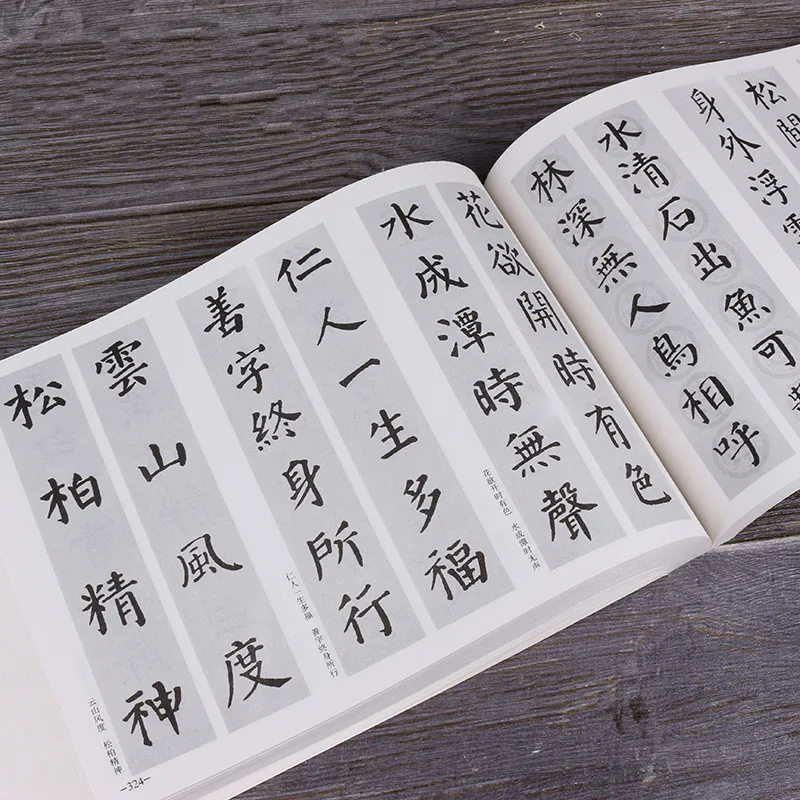 花欲開時有色
水成潭時無聲
花欲开时有色 水成潭时无声
仁人一生多福
善字終身所行
仁人一生多福 善字终身所行
雲山風度
松柏精神
云山风度 松柏精神
-324-
松間
身外浮雲
水清石出魚可
林深無人鳥相呼